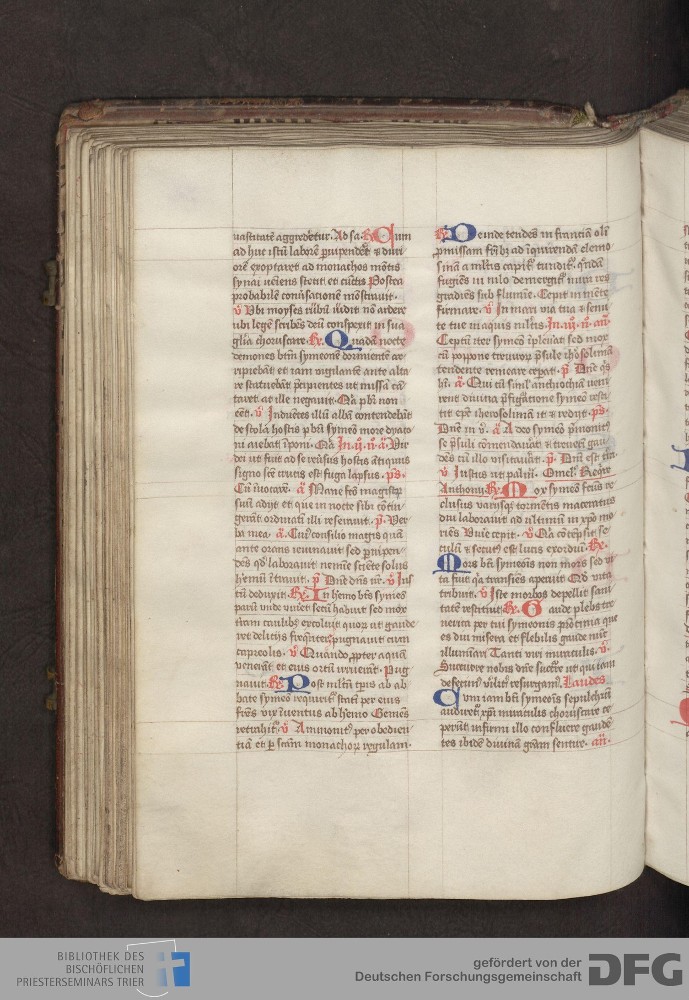 uastitatē aggrederetur. Ad sa. R Cum
ad huc istū laborē ꝑuipenderet & duri
orē exoptaret ad monachos mōtis
synai ueniens stetit et cūctis Postea
probabilē conūsationē mōstrauit.
v Vbi moyses rūbū uidit nō ardere
ubi legē scribēs deū conspexit in sua
gl̄ia choruscare. R Quadā nocte
demones btm̄ symeonē dormientē ar
ripiebāt et iam vigilantē ante alta
re statuebāt ꝑcipientes ut missā cā
taret at ille negauit. Qa pbr̄ non
eēt. v Induētes illū albā contendebāt
de stola hostis p btū symeō more dyaco
ni aiebāt īponi. Qa In ij n a Vir
dei ut fuit ad se reūsus hostis ātiquus
signo scē crucis est fuga lapsus. ps
Cū īuocarē. a Mane frēs magistrū
suū adijt et que in nocte sibi cōtin
gerāt ordinatī illi reserauit. p Ver
ba mea. a Cuiꝰ consilio magis quā
ante orans ieiunauit sed ꝑuipen
dēs qd laborauit nemīe sciēte solus
heremū ītrauit. p Dn̄e dn̄s nr̄. v Jus
tū deduxit. R In heremo btūs symeō
paruū unde viuēt secū habuit sed mox
terram caulibꝫ excoluit quorū ut gaude
ret delicijs frequēter pugnauit cum
capreolis. v Quando propter aquā
venerāt et eius ortū irruerāt. Pug
nauit. R Post multū tꝑis ab ab
bate symeō requirit̄ statī per eius
frēs vix īuentus ab heremo Gemēs
retrahit̄. v Ammonitꝰ per obedien
tiā et p̄ scām monachorū regulam.
R Deinde tendēs in franciā olī
ꝓmissam frībꝫ ad īquirendā elemo
sinā a multis capit̄ tundit̄ quēdā
fugiēs in nilo demergit̄ miri res
gradiēs sub flumīe. Cepit in mēte
firmare. v In mari via tua & semi
te tue in aquis multis. In iij n an
Ceptū iter symeō īpleuit sed mox
cū poppone treuirorū p̄sule iherosolimā
tendente remeare ceperat. p Dn̄e qs
hī. a Qui cū simul anthiochiā veni
rent diuina p̄figuratione symeō resti
tit eps̄ iherosolimā it & redijt. ps
Dn̄e in v. a A deo symeō p̄monitꝰ
se p̄suli cōmendauit & treuerī gau
dēs cū illo visitauit. p Dn̄i est tra
v Justus ut palm̄. Omel. Reqre
Anthonij R Mox symeō fctūs re
clusus varijsqꝫ tormētis maceratus
diu laborauit ad ultimū in xpo mo
riēs Viuē cepit. v Qa cōtēpsit se
culū & secutꝰ est lucis exordiū. R
Mors bti symeōis non mors sed vi
ta fuit qa transiēs aperuit Qd vita
tribuit. v Iste morbos depellit sani
tatē restituit. R Gaude plebs tre
uerica per tui symeonis p̄rōcinia que
es diu misera et flebilis gaude nūc
illuminari Tanti viri miraculis. v
Succurre nobis dn̄e succurre ut qui iam
deserūt vilit̄ resurgam̄. Laudes
Cum iam bti symeōis sepulchrū
audiretꝫ xp̄i miraculis choruscare ce
perūt infirmi illo confluere gaudē
tes ibidē diuinā grām sentire. an
BIBLIOTHEK DES
BISCHÖFLICHEN
PRIESTERSEMINARS TRIER
gefördert von der
Deutschen Forschungsgemeinschaft
DFG